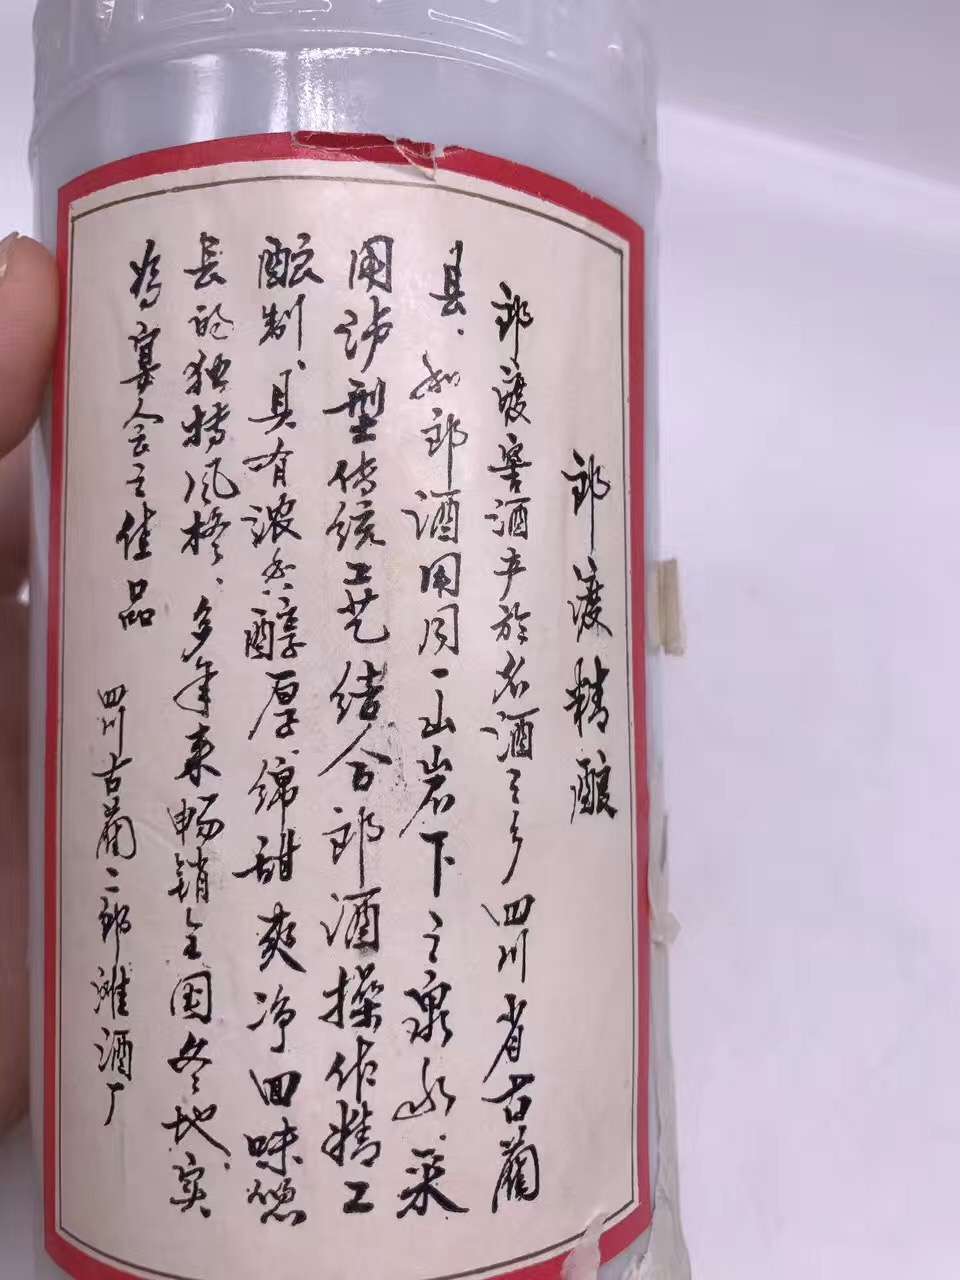 郎渡精酿
郎渡窖酒产於名酒之乡四川省古蔺
县．和郎酒用同一山岩下之泉水．采
用泸型传统工艺结合郎酒操作精工
酿制、具有浓香醇厚、绵甜爽净回味悠
长的独特风格、多年来畅销全国各地．实
为宴会之佳品
四川古蔺二郎滩酒厂